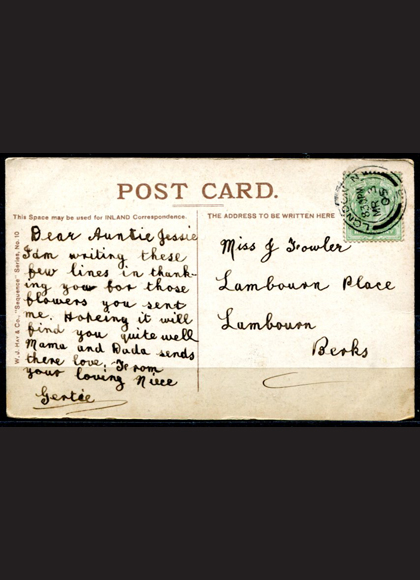 POST CARD.
This Space may be used for INLAND Correspondence.
THE ADDRESS TO BE WRITTEN HERE
W. J. Hay & Co., "Sequence" Series, No. 10
Dear Auntie Jessie
I am writing these
few lines in thank-
ing you for those
flowers you sent
me. Hopeing it will
find you quite well
Mama and Dada sends
there love; From
your loving Niece
Gertie
Miss J Fowler
Lambourn Place
Lambourn
Berks
LONDON N